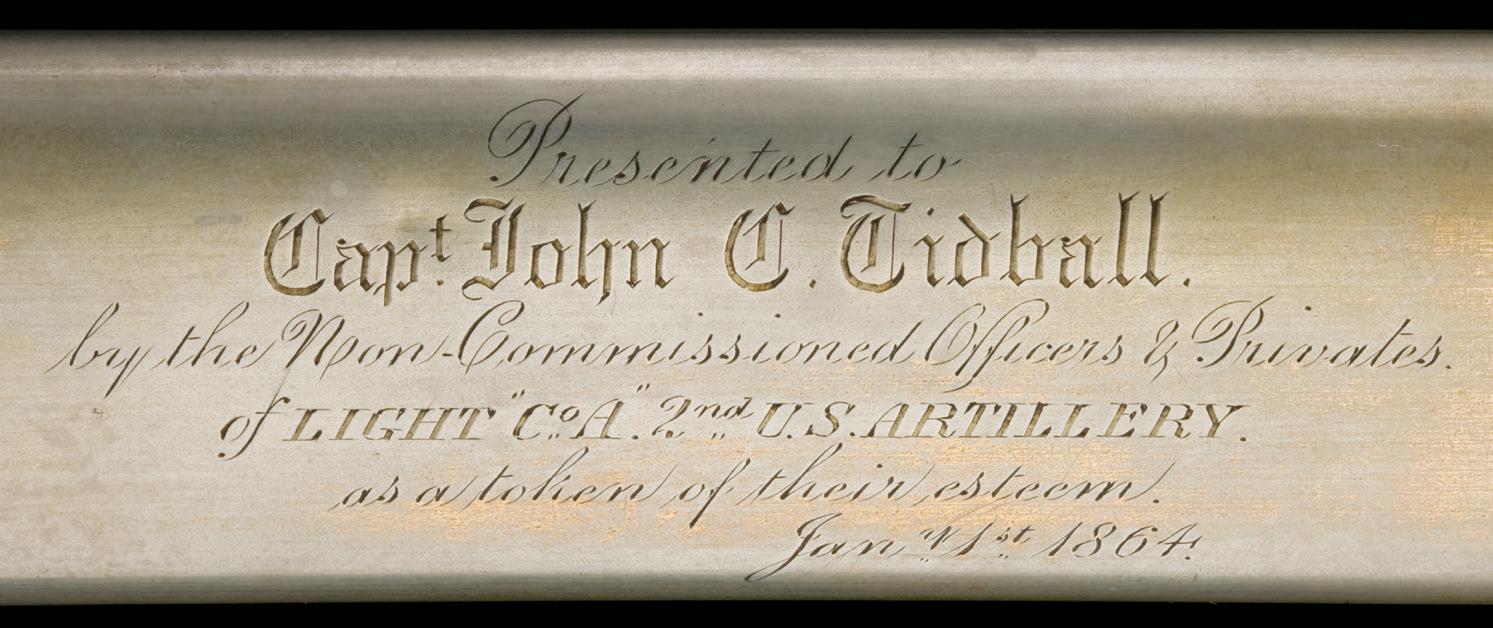 Presented to
Capt. John C. Tidball.
by the Non-Commissioned Officers & Privates.
of LIGHT "Co. A". 2nd U.S. ARTILLERY.
as a token of their esteem.
Jany 1st 1864.